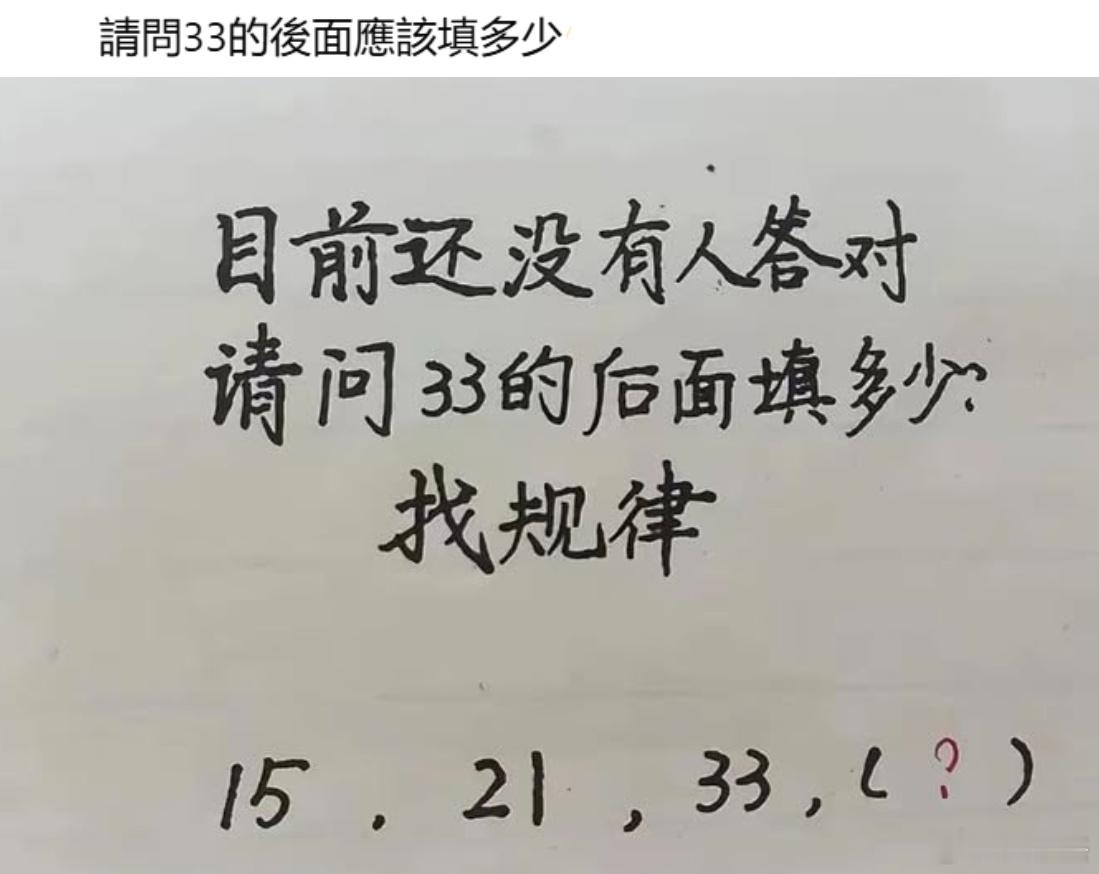 請問33的後面應該填多少
目前还没有人答对
请问33的后面填多少?
找规律
15, 21, 33, (?)